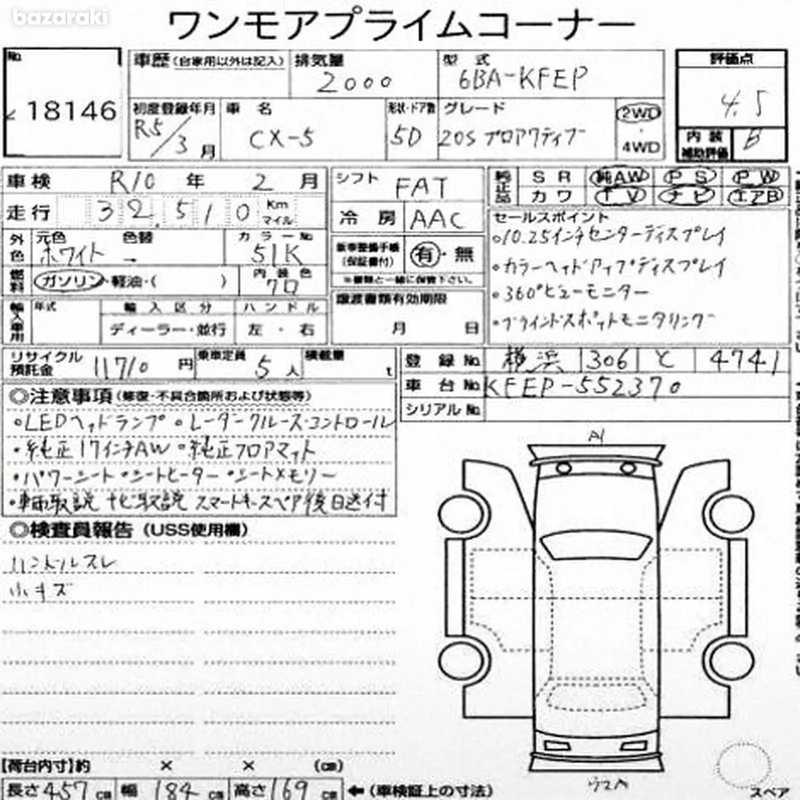 bazaraki
ワンモアプライムコーナー
No 18146
車歴 (自家用以外は記入) 排気量 2000 型式 6BA-KFEP 評価点 4.5
初度登録年月 R5/3月 車名 CX-5 形状・ドア数 5D グレード 20S プロアクティブ 2WD・4WD 内装補助評価 B
車検 R10年 2月 シフト FAT 純正品 SR 純AW PS PW
走行 32,510 Km マイル 冷房 AAC カワ TV ナビ エアB
外色 元色 ホワイト 色替 - カラーNo 51K 新車整備手帳 (保証書付) 有・無
※書類と一緒に保管下さい。
燃料 ガソリン・軽油・( ) 内装色 クロ
セールスポイント
○10.25インチセンターディスプレイ
・カラーヘッドアップディスプレイ
・360°ビューモニター
・ブラインドスポットモニタリング
輸入車用 年式 輸入区分 ディーラー・並行 ハンドル 左・右 譲渡書類有効期限 月 日
リサイクル預託金 11710円 乗車定員 5人 積載量 t 登録No 横浜 306 と 4741
車台No KFEP-552370
シリアルNo
◎注意事項 (修復・不具合箇所および状態等)
・LEDヘッドランプ ・レーダークルーズコントロール
・純正17インチAW ・純正フロアマット
・パワーシート ・シートヒーター ・シートメモリー
・車両取説 ナビ取説 スマートキースペア後日送付
◎検査員報告 (USS使用欄)
ハンドルスレ
小キズ
【荷台内寸】約 × × (cm)
長さ457cm 幅184cm 高さ169cm ←(車検証上の寸法)
スペア